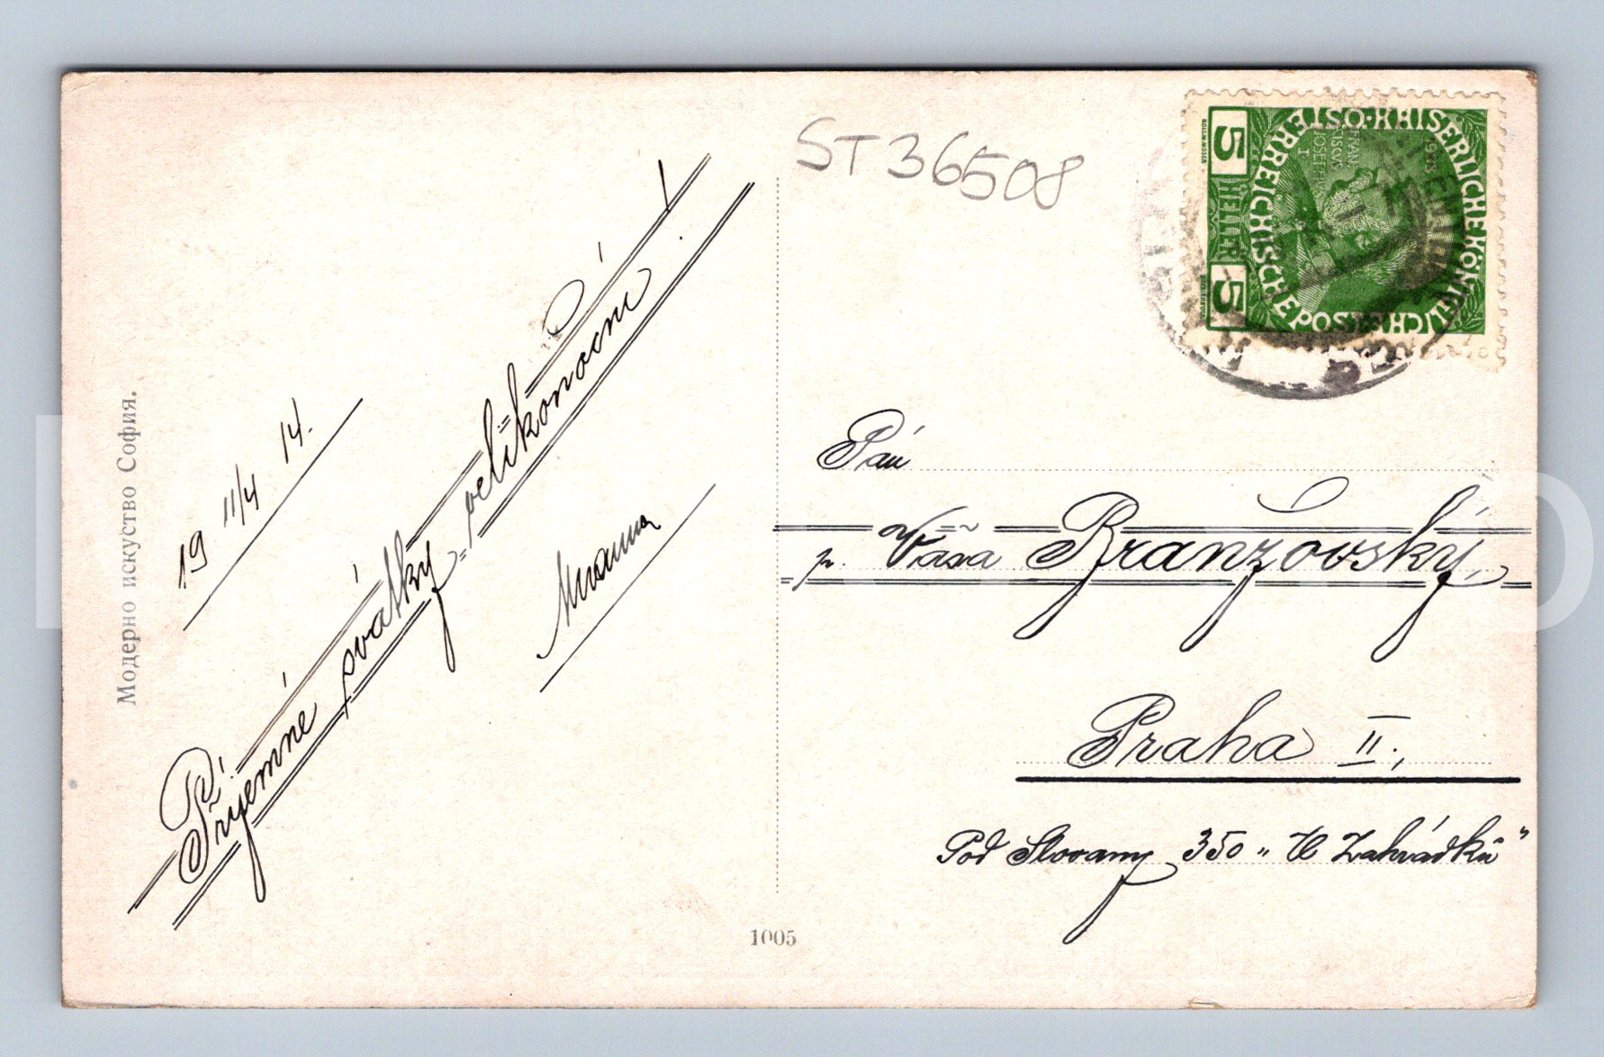 ST36508
19 11/4 14.
Příjemné svátky velikonoční!
Модерно искуство София.
1005
5 HELLER 5
KAISERLICHE KÖNIGLICHE
ÖSTERREICHISCHE POST
Pan
p. Váša Branžovský,
Praha II.,
Pod Slovany 350 „U Zahrádků"